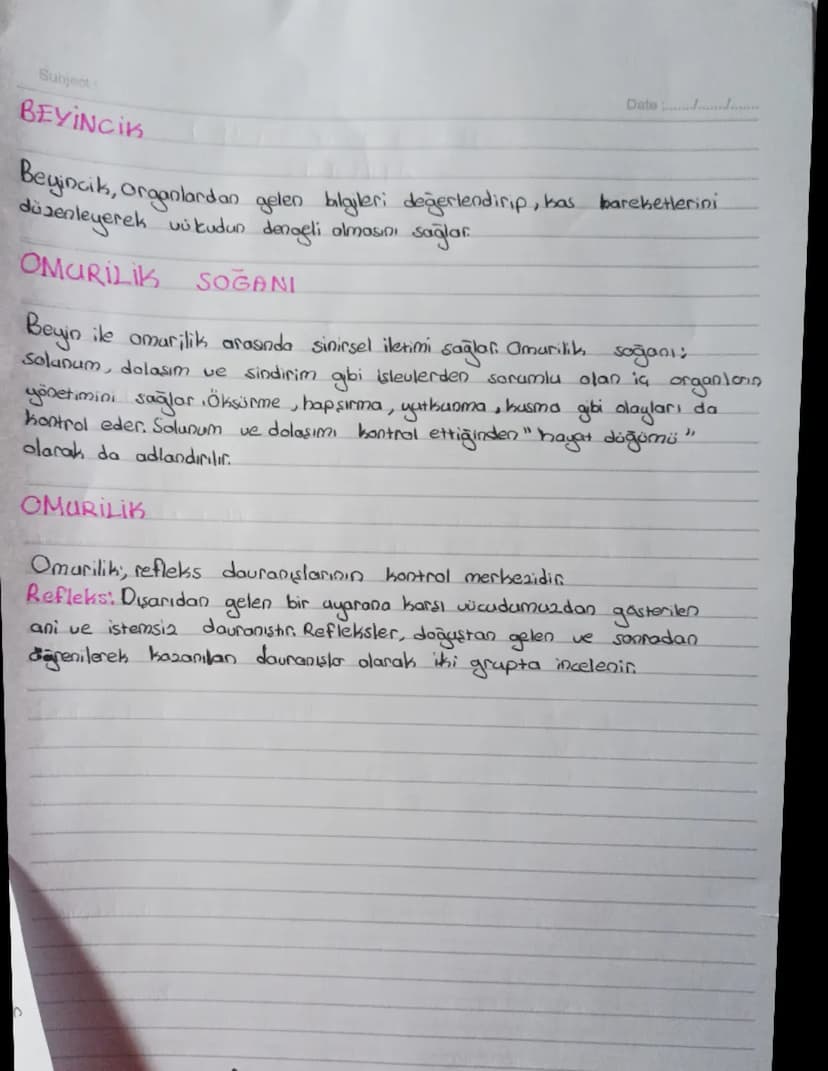 Subject :
Date :......./......./.......
BEYİNCİK
Beyincik, organlardan gelen bilgileri değerlendirip, kas hareketlerini
düzenleyerek vücudun dengeli olmasını sağlar.
OMURİLİK SOĞANI
Beyin ile omurilik arasında sinirsel iletimi sağlar. Omurilik soğanı;
solunum, dolaşım ve sindirim gibi işlevlerden sorumlu olan iç organların
yönetimini sağlar. Öksürme, hapşırma, yutkunma, kusma gibi olayları da
kontrol eder. Solunum ve dolaşımı kontrol ettiğinden "hayat düğümü"
olarak da adlandırılır.
OMURİLİK
Omurilik; refleks davranışlarının kontrol merkezidir.
Refleks: Dışarıdan gelen bir uyarana karşı vücudumuzdan gösterilen
ani ve istemsiz davranıştır. Refleksler, doğuştan gelen ve sonradan
öğrenilerek kazanılan davranışlar olarak iki grupta incelenir.